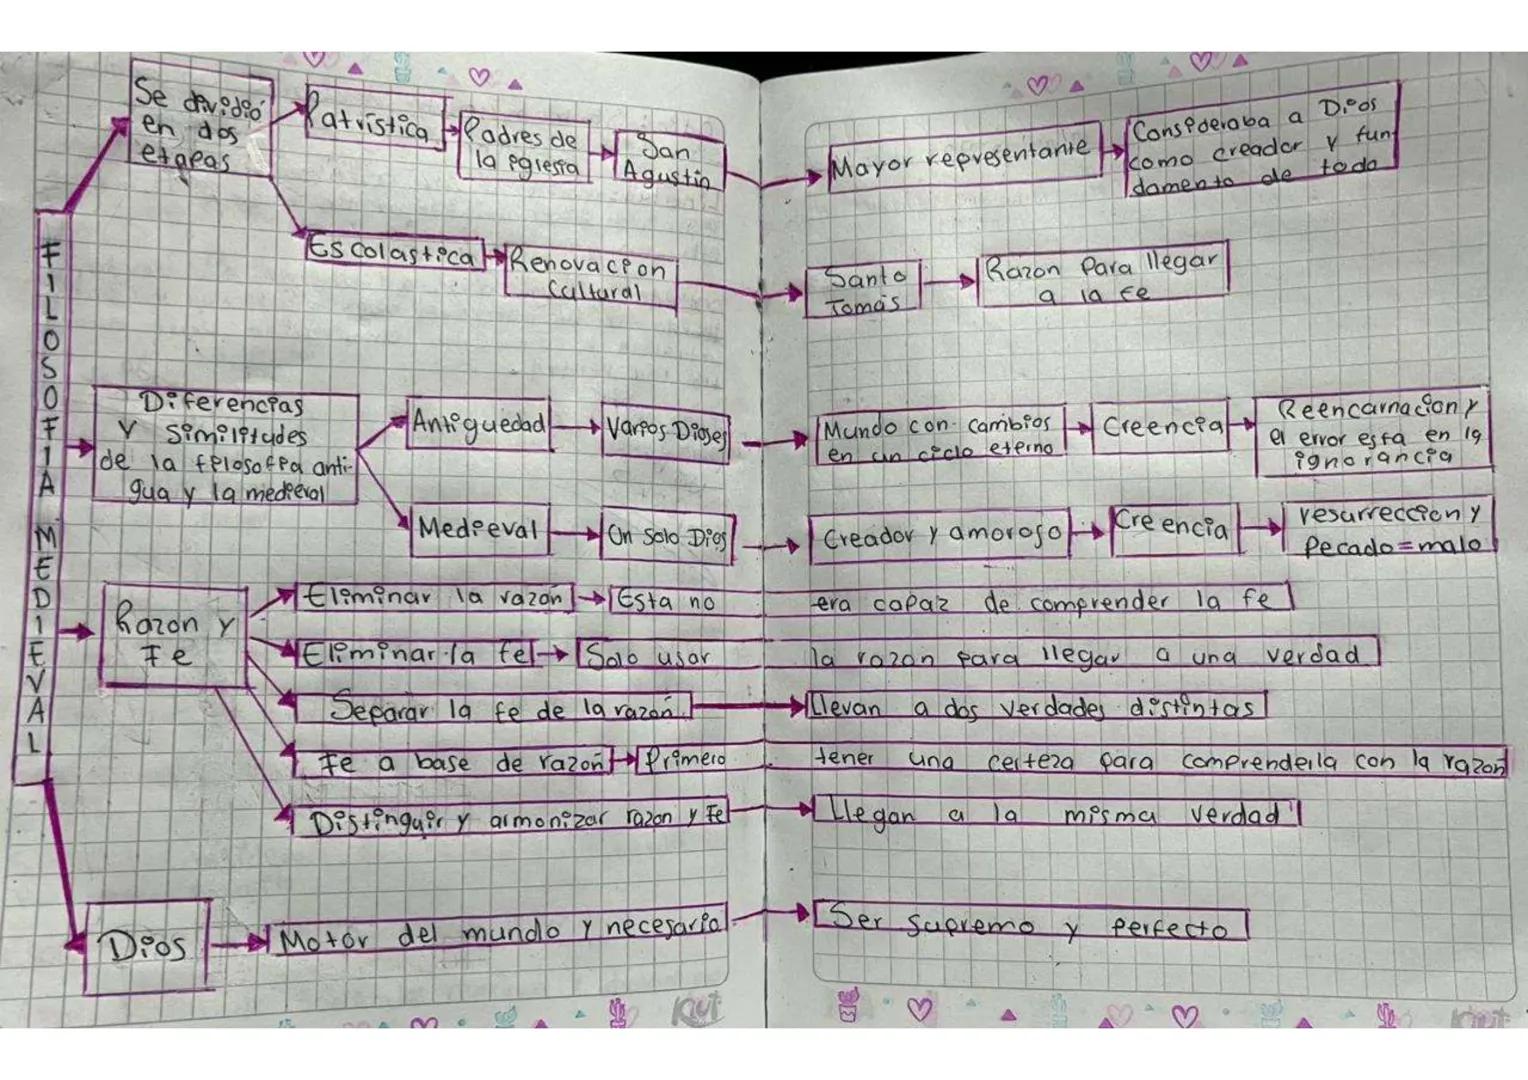 FILOSOFIA MEDIEVAL
Se dividió
en dos
etapas
Patristica
Padres de
la iglesia
San
Agustin
Mayor representante
Consideraba a Dios
como creador y fun
damento de todo
Escolastica
Renovacion
Cultural
Santo
Tomás
Razon Para llegar
a la fe
Diferencias
y similitudes
de la filosofia anti-
gua y la medieval
Antiguedad
Varios Dioses
Mundo con cambios
en un ciclo eterno
Creencia
Reencarnacion y
el error esta en la
ignorancia
Medieval
Un Solo Dios
Creador y amoroso
Creencia
resurreccion y
Pecado=malo
Razon y
Fe
Eliminar la razon
Esta no era capaz de comprender la fe
Eliminar la fe
Solo usar la razon para llegar a una verdad
Separar la fe de la razon
Llevan a dos verdades distintas
Fe a base de razon
Primero tener una certeza para comprenderla con la razon
Distinguir y armonizar razon y Fe
Llegan a la misma verdad
Dios
Motor del mundo y necesario
Ser Supremo y perfecto